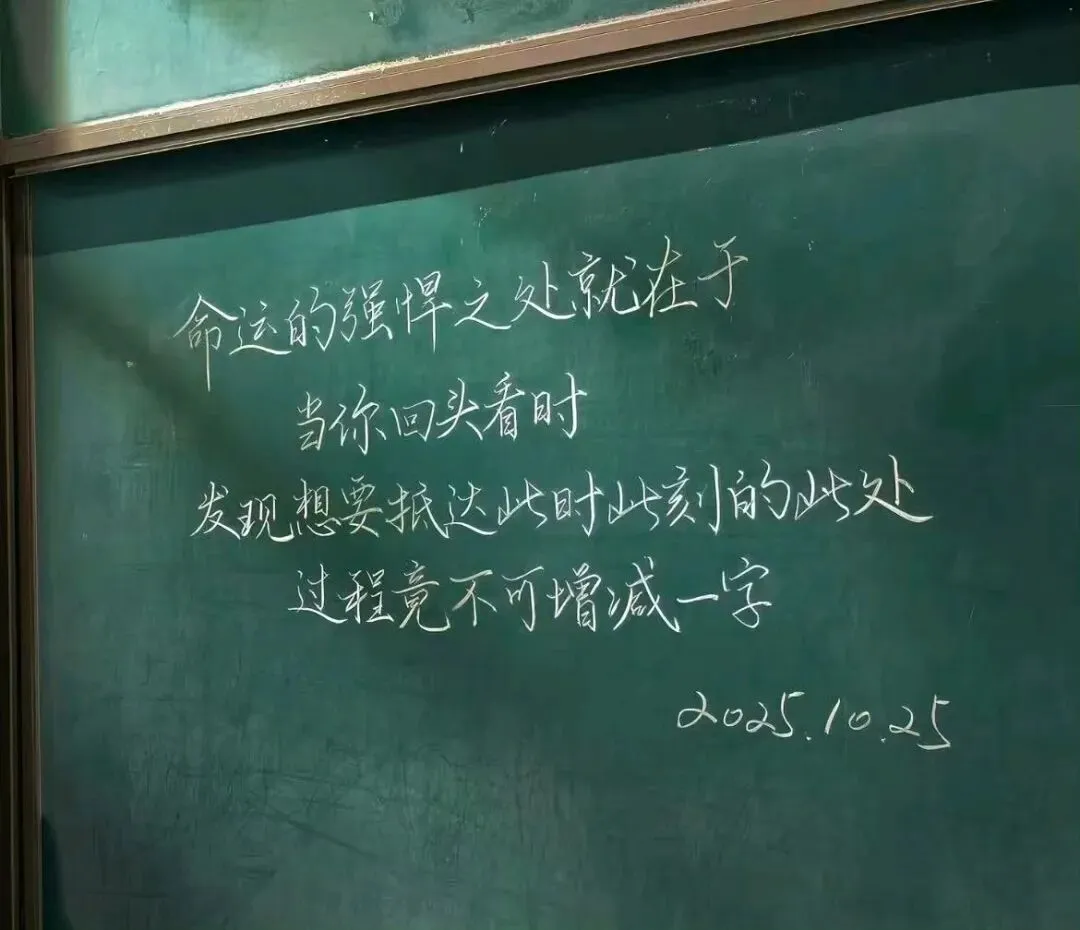 命运的强悍之处就在于
当你回头看时
发现想要抵达此时此刻的此处
过程竟不可增减一字
2025.10.25